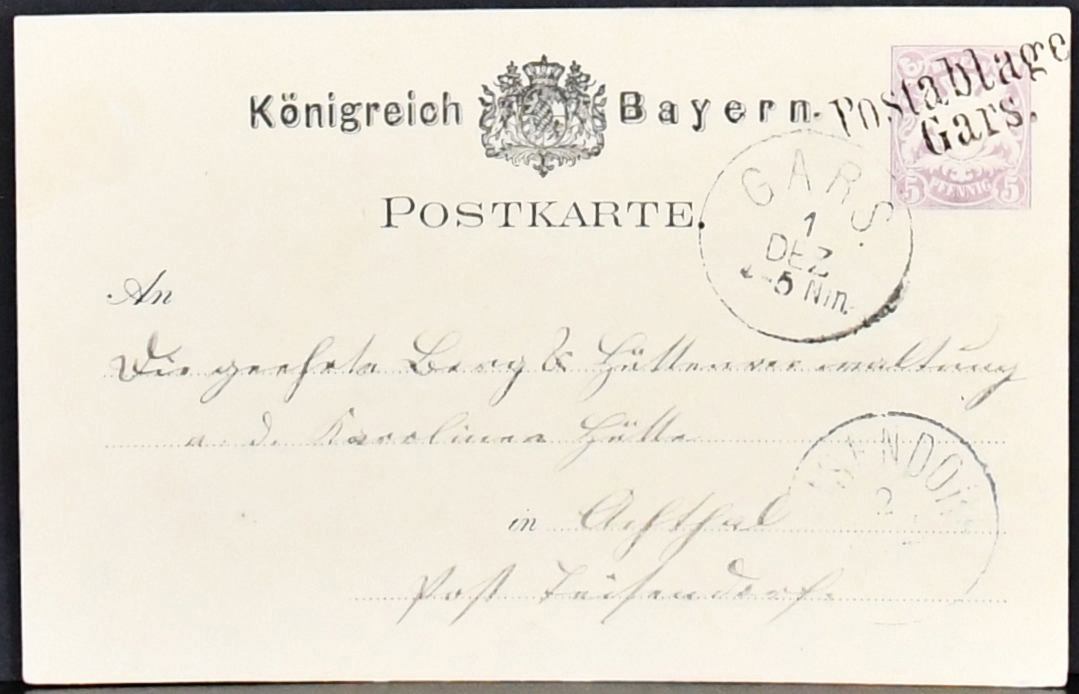 Königreich Bayern.
Postablage
Gars.
5 PFENNIG 5
POSTKARTE.
GARS.
1
DEZ
4-5 Nm.
An
Die geehrte Berg & Hüttenverwaltung
a. d. Karolinen Hütte
in Achthal
Post Teisendorf.
2